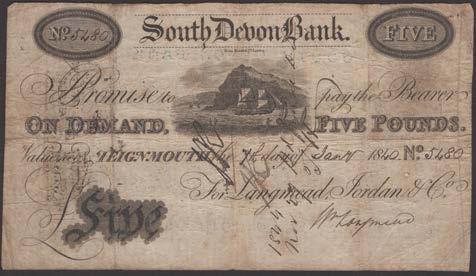 No. 5480 South Devon Bank. FIVE
I Promise to pay the Bearer
ON DEMAND, FIVE POUNDS.
Value recd. TEIGNMOUTH the 7th day of Jany 1840 No. 5480
For Langmead, Jordan & Co.
£ Five Wm Langmead